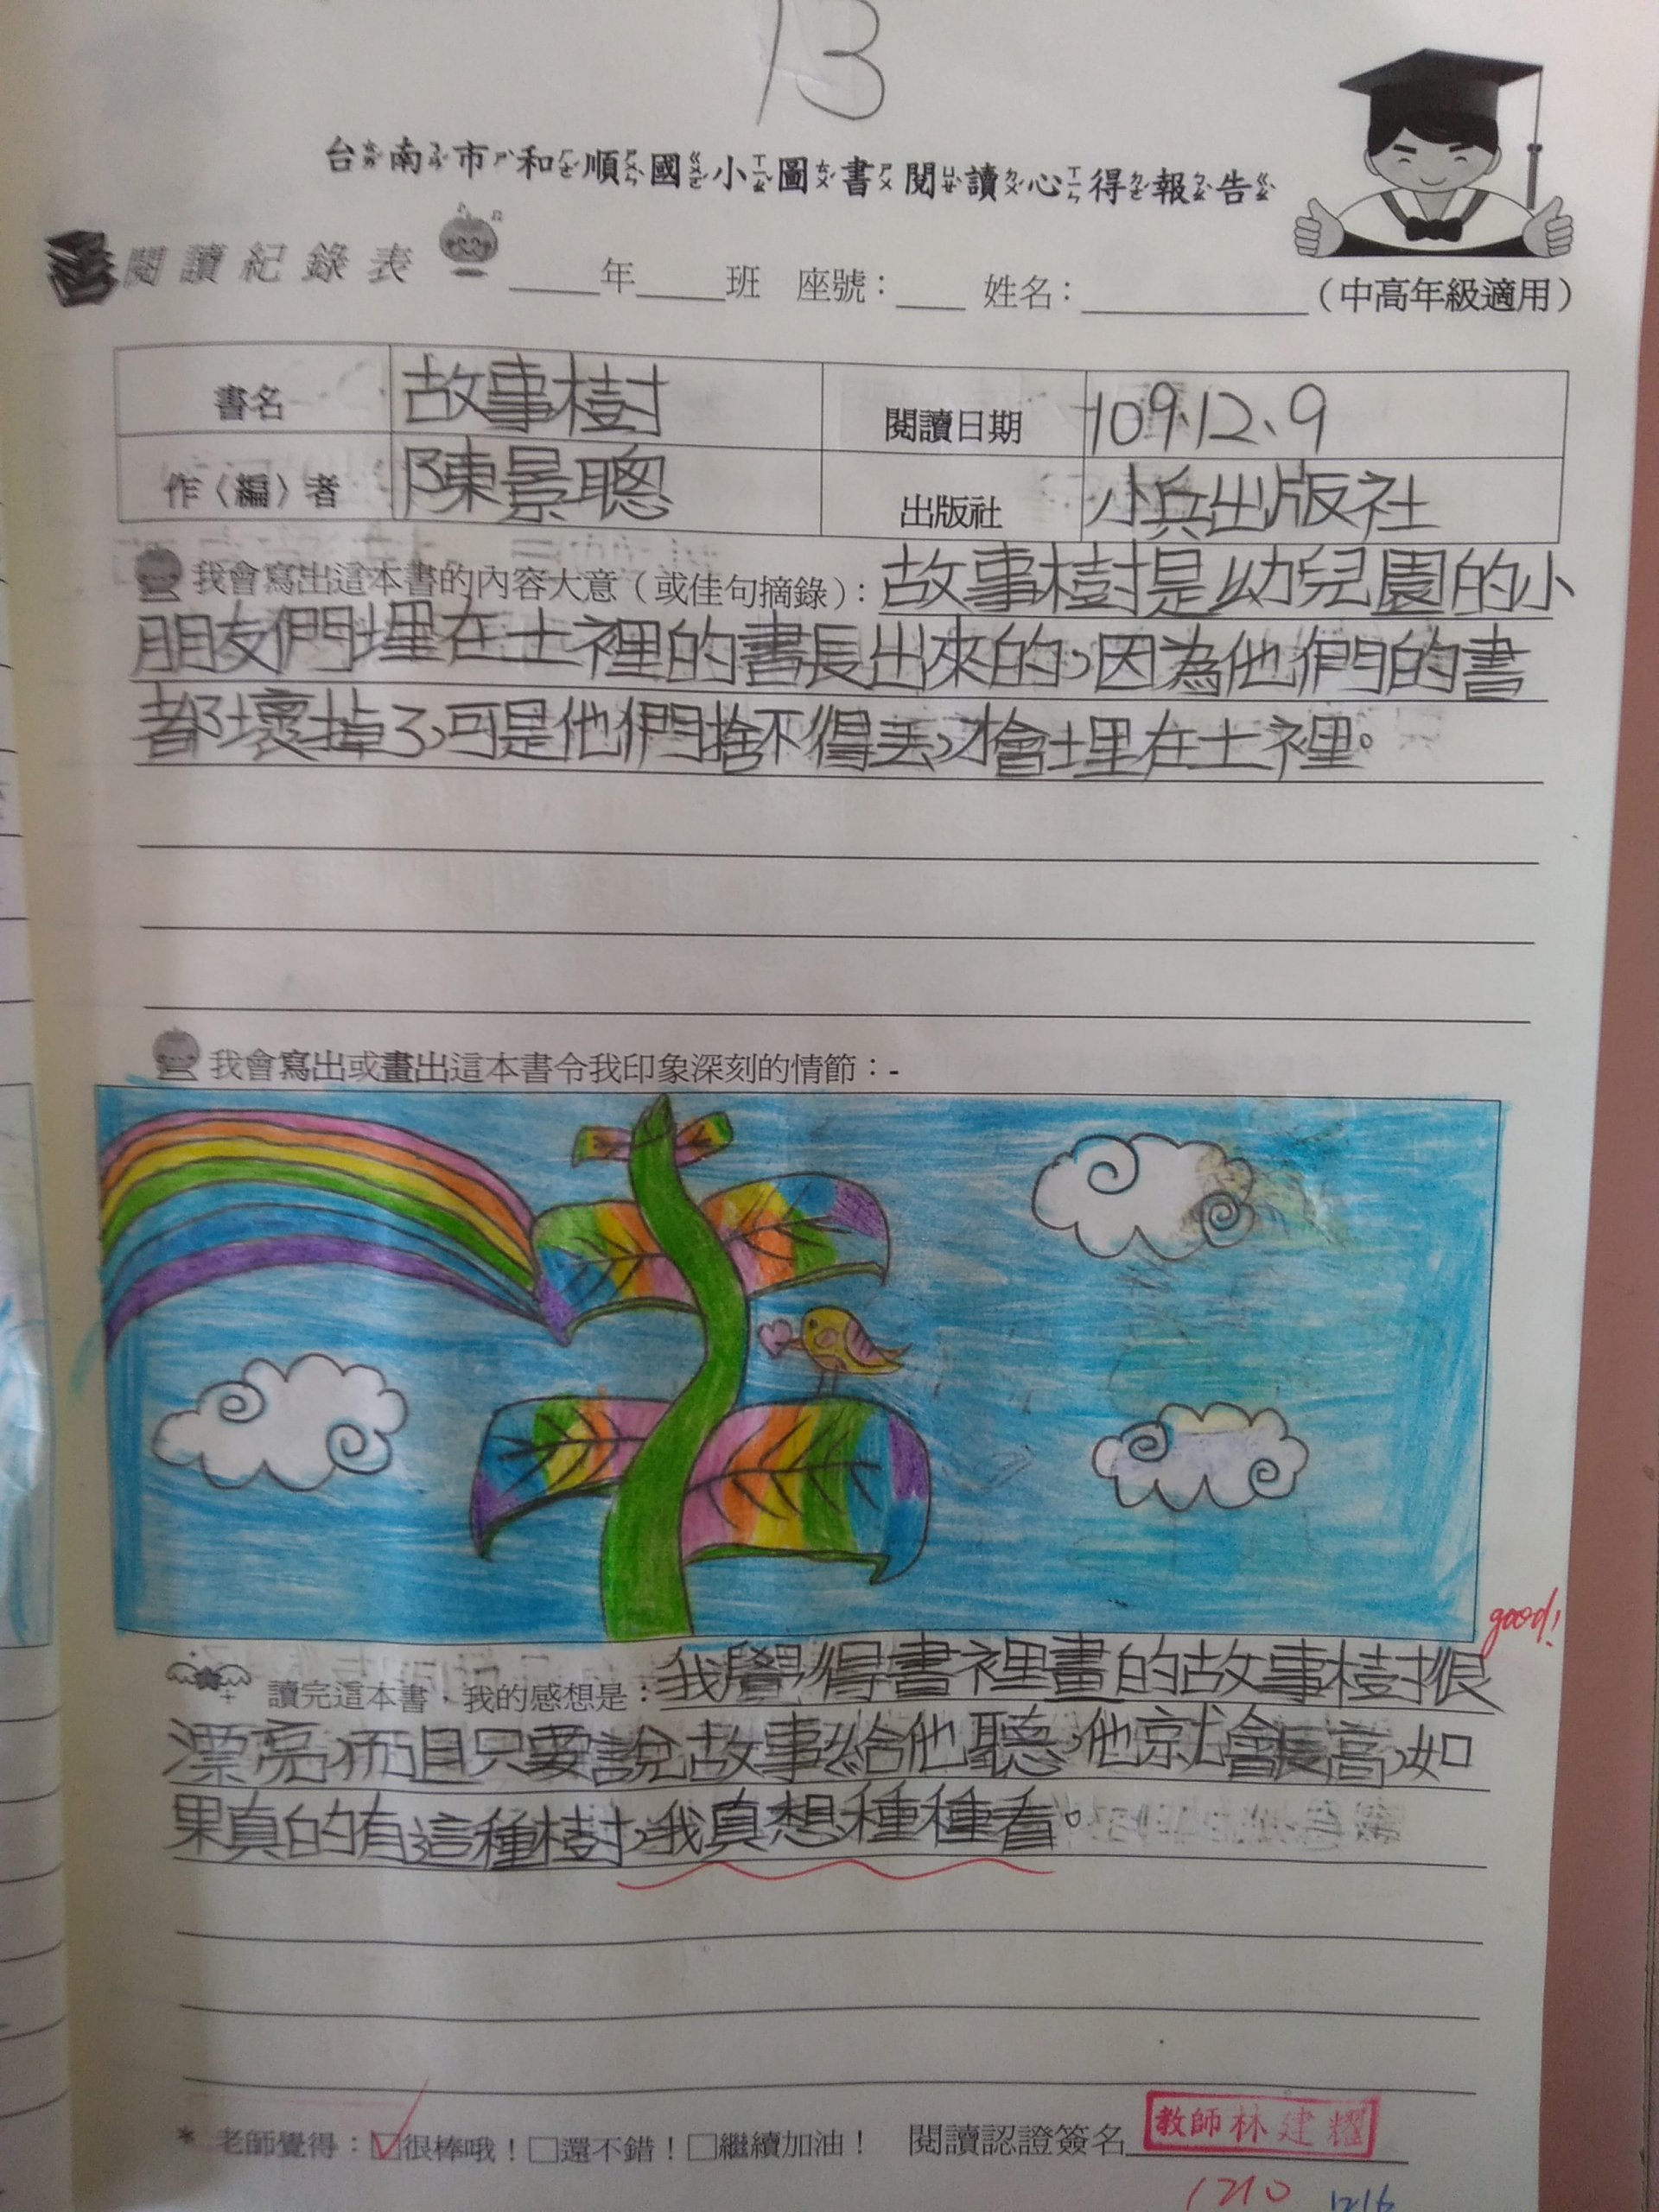 13
台南市和順國小圖書閱讀心得報告
閱讀紀錄表 ____年____班 座號：___ 姓名：__________（中高年級適用）
書名 故事樹 閱讀日期 109.12、9
作〈編〉者 陳景聰 出版社 小兵出版社
我會寫出這本書的內容大意（或佳句摘錄）：故事樹是幼兒園的小
朋友們埋在土裡的書長出來的，因為他們的書
都壞掉了，可是他們捨不得丟，才會埋在土裡。
我會寫出或畫出這本書令我印象深刻的情節：-
good!
讀完這本書，我的感想是：我覺得書裡畫的故事樹很
漂亮，而且只要說故事給他聽，他就會長高，如
果真的有這種樹，我真想種種看。
* 老師覺得：☑很棒哦！□還不錯！□繼續加油！ 閱讀認證簽名 教師林建耀
1210 1216